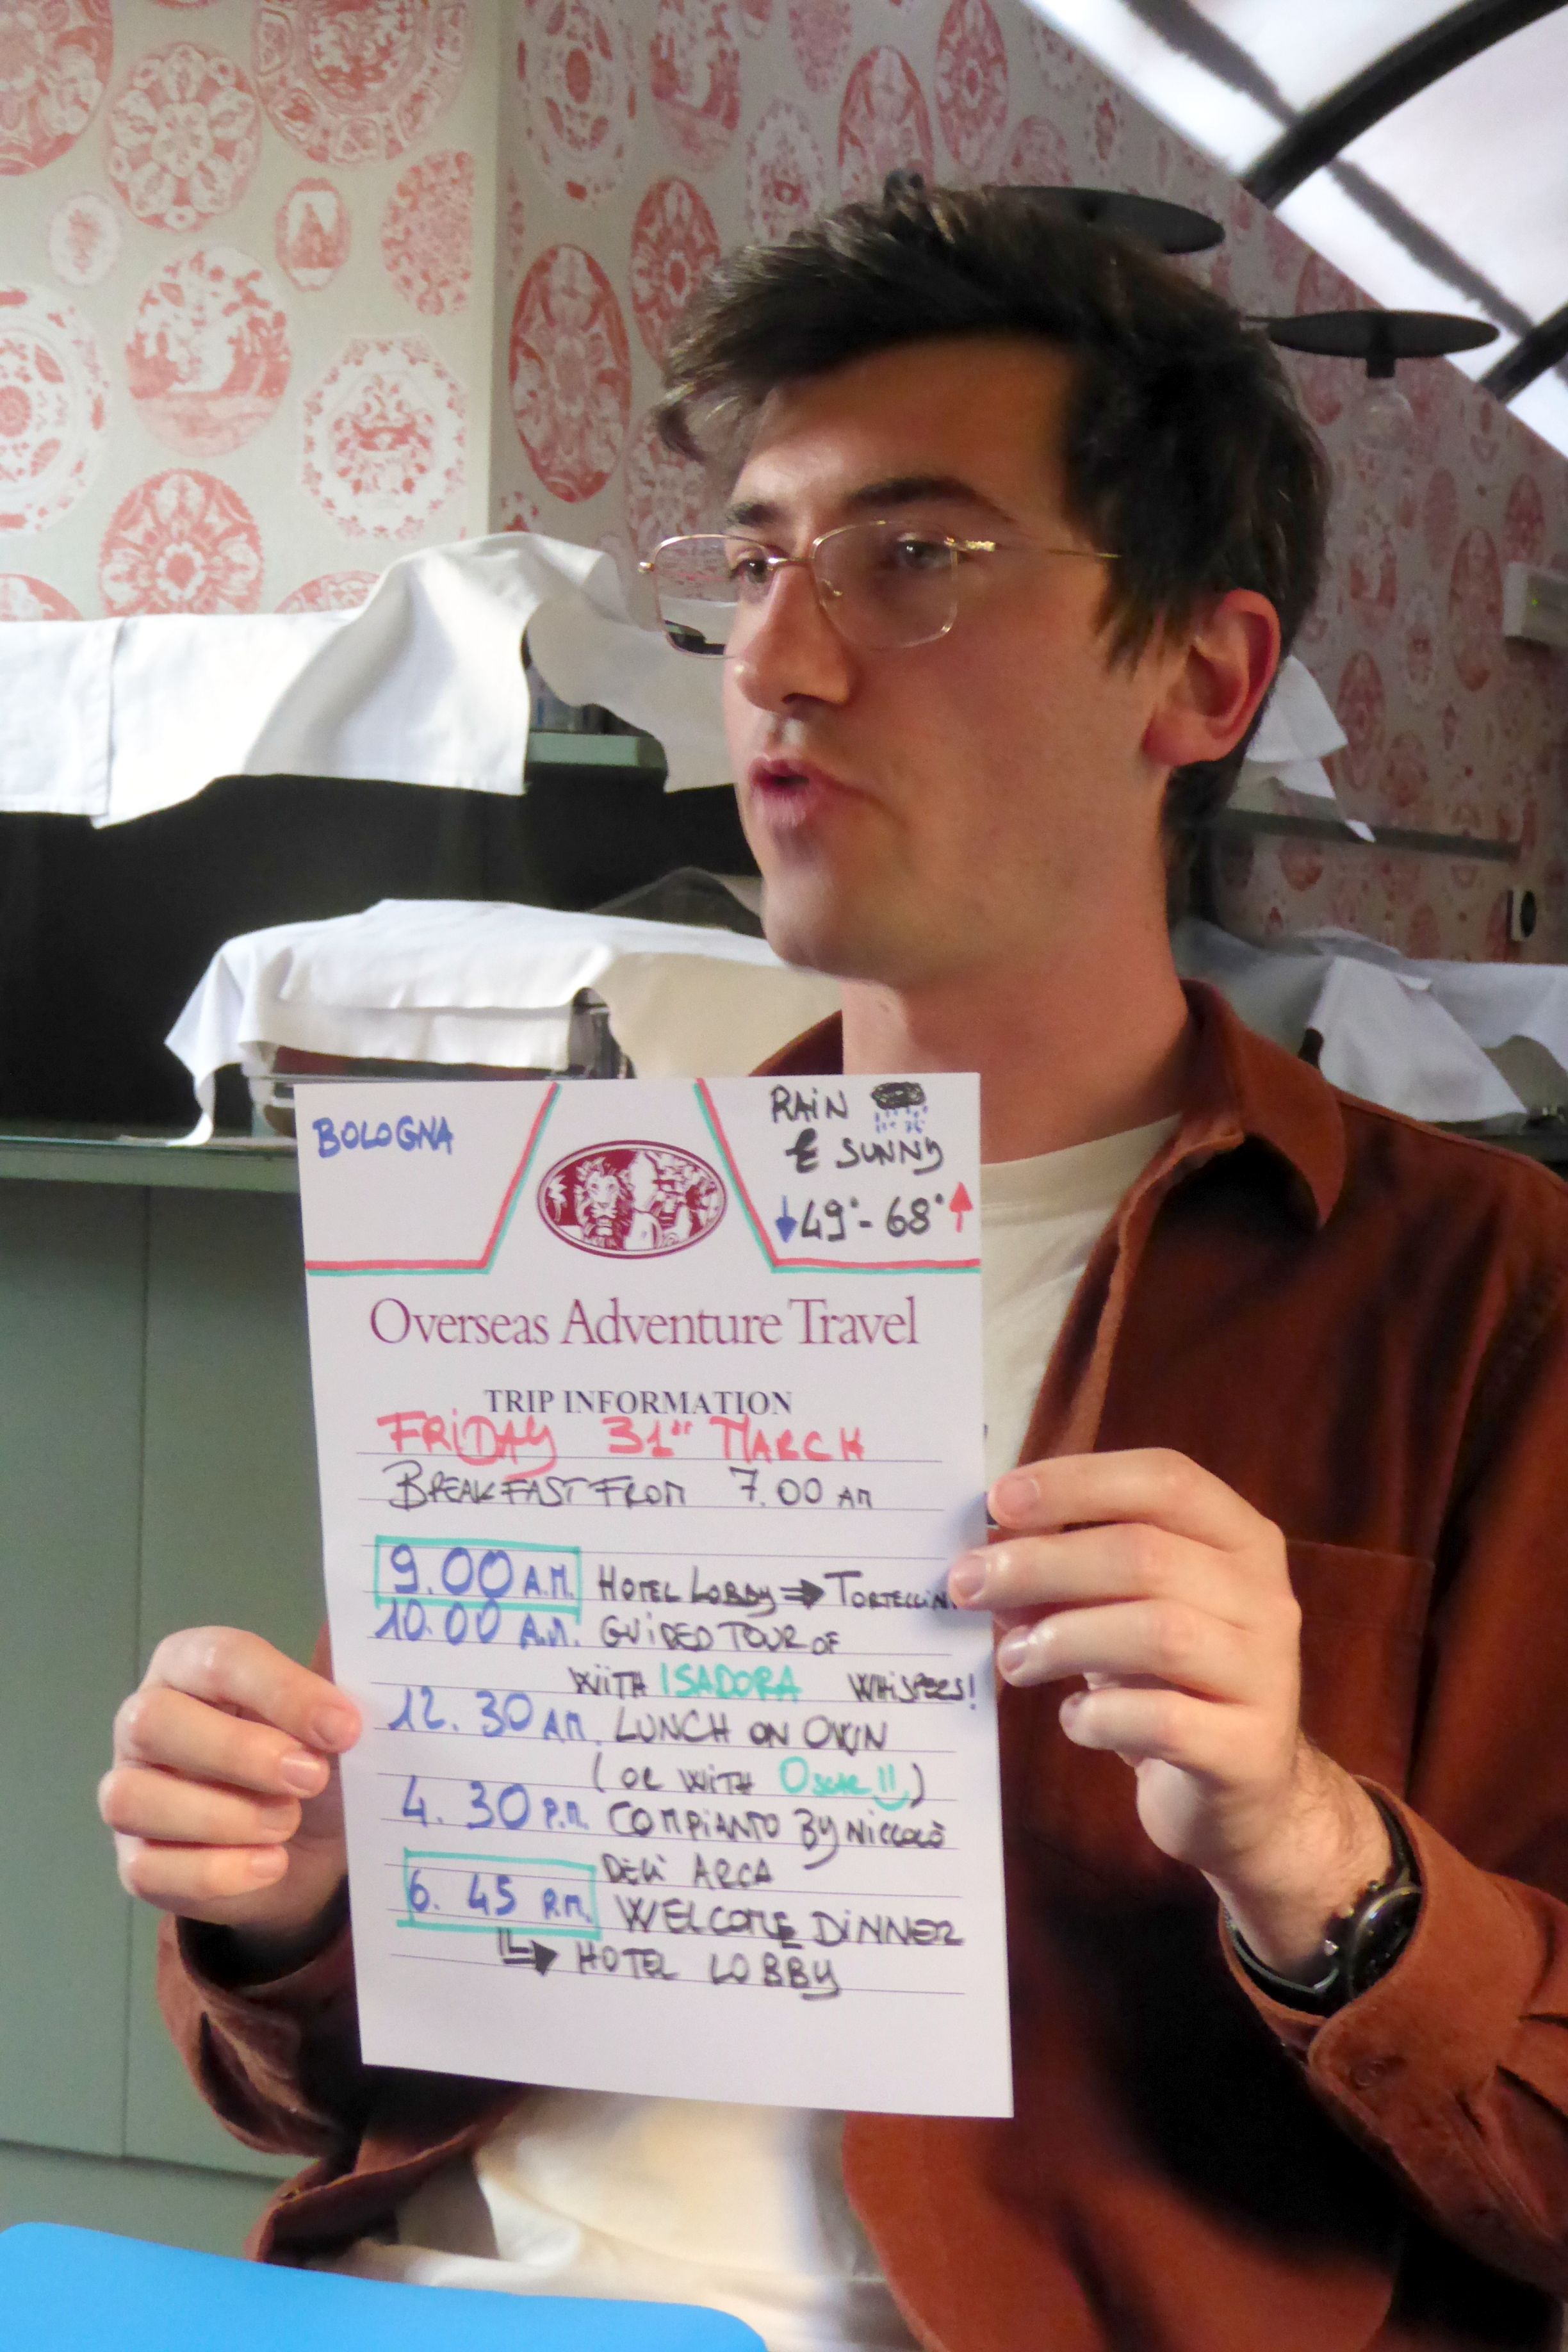 BOLOGNA
RAIN
& SUNNY
49°- 68°
Overseas Adventure Travel
TRIP INFORMATION
FRIDAY 31st MARCH
BREAKFAST FROM 7.00 AM
9.00 A.M. HOTEL LOBBY ⇒ TORTELLINI
10.00 A.M. GUIDED TOUR OF
WITH ISADORA WHISPERS!
12.30 AM. LUNCH ON OWN
(OR WITH OSCAR!!)
4.30 P.M. COMPIANTO BY NICCOLÒ
DELL' ARCA
6.45 P.M. WELCOME DINNER
HOTEL LOBBY